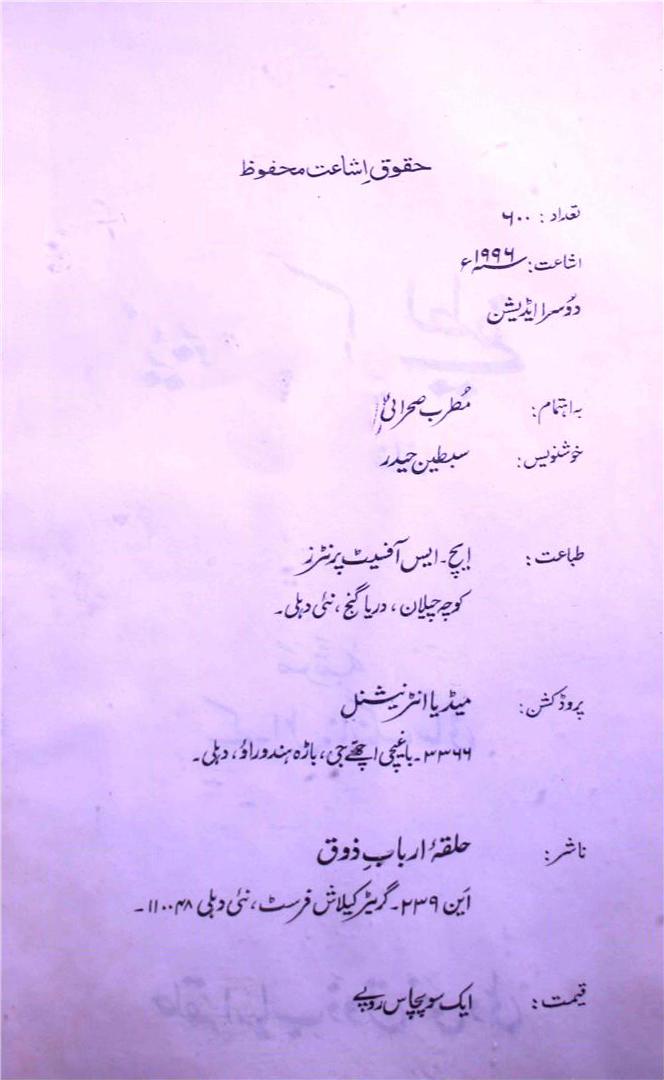 حقوقِ اشاعت محفوظ
تعداد: ۶۰۰
اشاعت: ۱۹۹۶ء
دُوسرا ایڈیشن
بہ اہتمام: مُطرب صحرائی
خوشنویس: سبطین حیدر
طباعت: ایچ۔ ایس آفسیٹ پرنٹرز
کوچہ چیلان، دریا گنج، نئی دہلی۔
پروڈکشن: میڈیا انٹرنیشنل
۳۳۶۶۔ باغیچی اچھے جی، باڑہ ہندو راؤ، دہلی۔
ناشر: حلقۂ اربابِ ذوق
این ۲۳۹۔ گریٹر کیلاش فرسٹ، نئی دہلی ۱۱۰۰۴۸۔
قیمت: ایک سو پچاس روپے